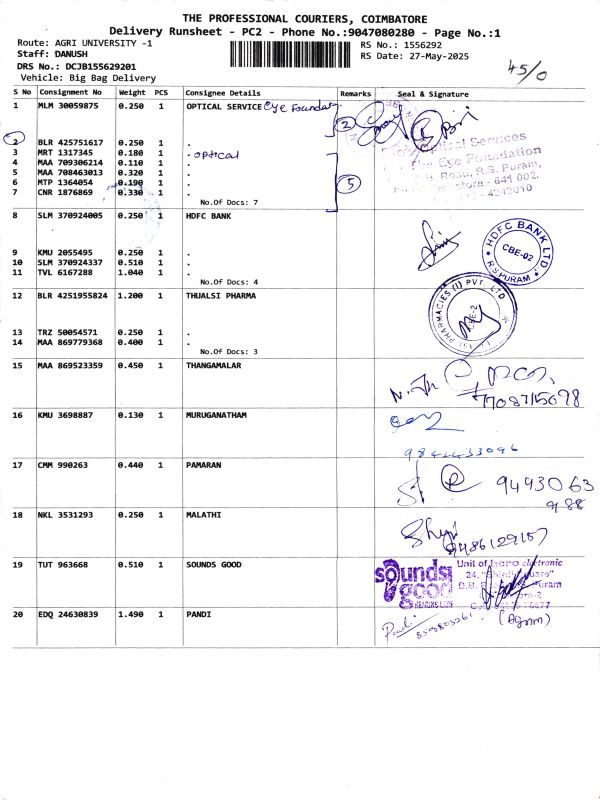 THE PROFESSIONAL COURIERS, COIMBATORE
Delivery Runsheet - PC2 - Phone No.:9047080280 - Page No.:1
Route: AGRI UNIVERSITY -1 RS No.: 1556292
Staff: DANUSH RS Date: 27-May-2025
DRS No.: DCJB155629201
Vehicle: Big Bag Delivery
45/0
S No Consignment No Weight PCS Consignee Details Remarks Seal & Signature
1 MLM 30059875 0.250 1 OPTICAL SERVICE Eye Foundat
2
2 BLR 425751617 0.250 1 .
3 MRT 1317345 0.180 1 . optical
4 MAA 709306214 0.110 1 .
5 MAA 708463013 0.320 1 .
6 MTP 1364054 0.190 1 .
7 CNR 1876869 0.330 1 .
5
No.Of Docs: 7
Optical Services
Eye Foundation
Road, R.S. Puram,
641 002.
4242010
8 SLM 370924005 0.250 1 HDFC BANK
9 KMU 2055495 0.250 1 .
10 SLM 370924337 0.510 1 .
11 TVL 6167288 1.040 1 .
No.Of Docs: 4
HDFC BANK LTD.
CBE-02
R S PURAM
12 BLR 4251955824 1.200 1 THUALSI PHARMA
13 TRZ 50054571 0.250 1 .
14 MAA 869779368 0.400 1 .
No.Of Docs: 3
PHARMACIES (I) PVT. LTD
CBE-2
15 MAA 869523359 0.450 1 THANGAMALAR
7708715698
16 KMU 3698887 0.130 1 MURUGANATHAM
9842433096
17 CMM 990263 0.440 1 PAMARAN
9493063
988
18 NKL 3531293 0.250 1 MALATHI
9486129157
19 TUT 963668 0.510 1 SOUNDS GOOD
sounds good
Unit of hero electronic
24,
D.B. Puram
20 EDQ 24630839 1.490 1 PANDI
Pandi